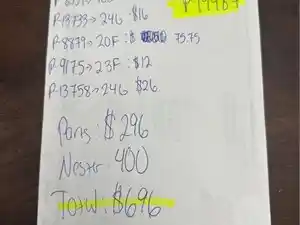 P-13733→24G $16
P-8879→20F:$ 75.75
P-9175→23F:$12
P-13758→24G $26
Parts: $296
400
Total: $696